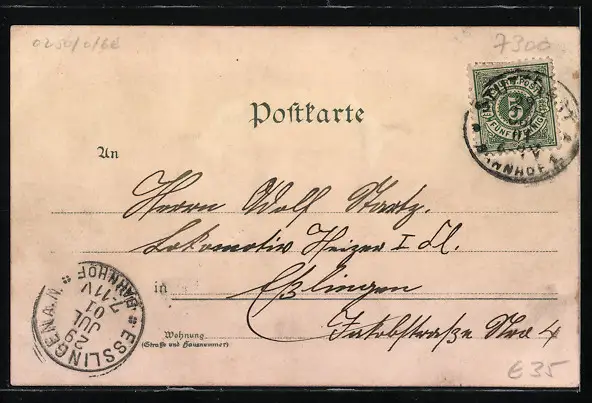 7300
Postkarte
5
FÜNF PFENNIG
STUTTGART
BAHNHOF
An
Herrn Adolf Startz.
Lokomotiv Heizer I Kl.
in Eßlingen
Wohnung
(Straße und Hausnummer)
Jakobstraße Nro 4
ESSLINGEN A/N
BAHNHOF
29 JUL 01
7-11 V
€35